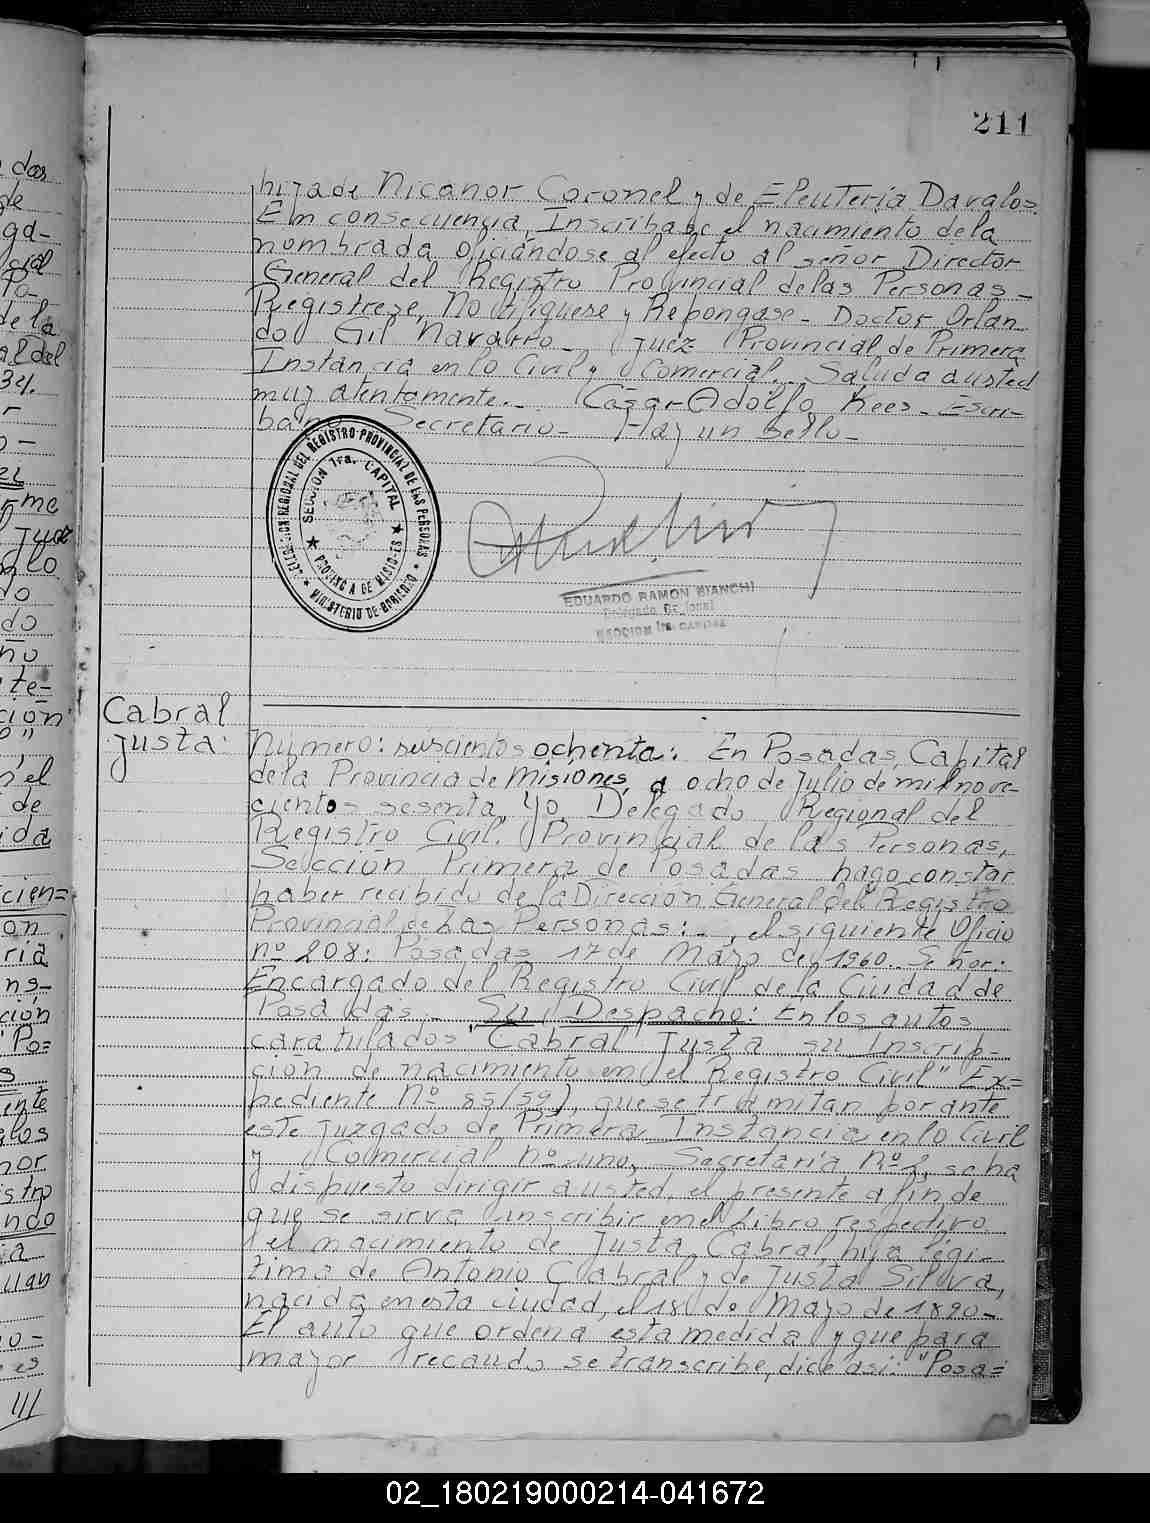 211
hija de Nicanor Coronel y de Eleuteria Davalos.
Em consecuencia, Inscribase el nacimiento de la
nombrada oficiándose al efecto al señor Director
General del Registro Provincial de las Personas -
Registrese, Notifiquese y Repongase - Doctor Orlan-
do Gil Navarro - Juez Provincial de Primera
Instancia en lo Civil y Comercial. - Saluda a usted
muy atentamente. - Cesar Adolfo Rees - Escri-
bano Secretario - Hay un sello -
DELEGACION REGIONAL DEL REGISTRO PROVINCIAL DE LAS PERSONAS
SECCION 1ra. CAPITAL
PROVINCIA DE MISIONES
MINISTERIO DE GOBIERNO
EDUARDO RAMON BIANCHI
Delegado Regional
SECCION 1ra. CAPITAL
Cabral
Justa
Número: duscientos ochenta: En Posadas, Capital
de la Provincia de Misiones, a ocho de Julio de mil nove-
cientos sesenta, Yo Delegado Regional del
Registro Civil. Provincial de las Personas,
Sección Primera de Posadas hago constar
haber recibido de la Dirección General del Registro
Provincial de Las Personas: -, el siguiente Oficio
nº 208: Posadas, 17 de Marzo de 1960. Señor:
Encargado del Registro Civil de la Ciudad de
Posadas. - Su Despacho: En los autos
caratulados "Cabral Justa su Inscrip-
ción de nacimiento en el Registro Civil" Ex=
pediente Nº 85/59), que se tramitan por ante
este Juzgado de Primera Instancia en lo Civil
y Comercial nº uno, Secretaría Nº 2, se ha
dispuesto dirigir a usted, el presente a fin de
que se sirva inscribir en el Libro respectivo
el nacimiento de Justa Cabral, hija legi-
tima de Antonio Cabral y de Justa Silva,
nacida en esta ciudad, el 18 de Mayo de 1890 -
El auto que ordena esta medida y que para
mayor recaudo se transcribe, dice así: "Posa=
02_180219000214-041672